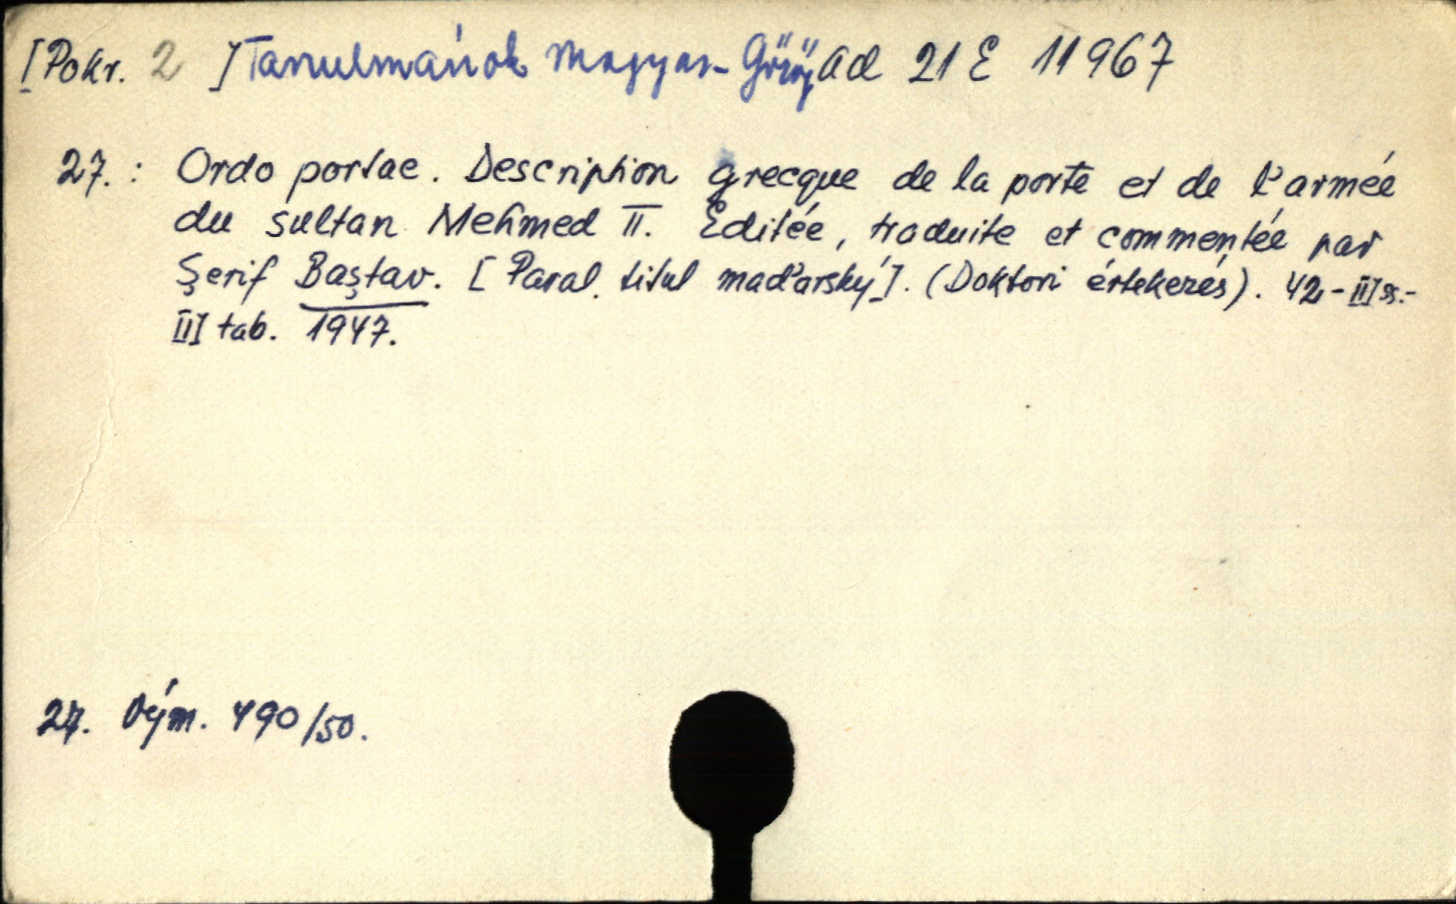 [Pokr. 2 ] Tanulmányok Magyar-Görög ad 21 E 11967
27. : Ordo portae. Description grecque de la porte et de l'armée
du sultan Mehmed II. Éditée, traduite et commentée par
Şerif Baştav. [Paral. titul maďarský]. (Doktori értekezés). 42-II] ss.-
II] tab. 1947.
27. Vým. 490/50.